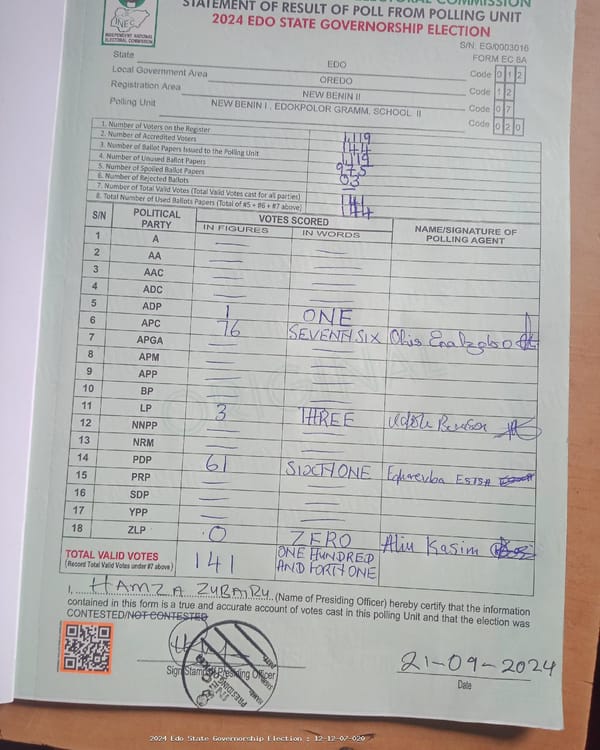 COMMISSION
STATEMENT OF RESULT OF POLL FROM POLLING UNIT
2024 EDO STATE GOVERNORSHIP ELECTION
INEC
INDEPENDENT NATIONAL ELECTORAL COMMISSION
S/N. EG/0003016
FORM EC 8A
State EDO Code 0 1 2
Local Government Area OREDO Code 1 2
Registration Area NEW BENIN II Code 0 7
Polling Unit NEW BENIN I, EDOKPOLOR GRAMM. SCHOOL II Code 0 2 0
1. Number of Voters on the Register 1,119
2. Number of Accredited Voters 144
3. Number of Ballot Papers Issued to the Polling Unit 1,119
4. Number of Unused Ballot Papers 975
5. Number of Spoiled Ballot Papers 03
6. Number of Rejected Ballots —
7. Number of Total Valid Votes (Total Valid Votes cast for all parties)
8. Total Number of Used Ballots Papers (Total of #5 + #6 + #7 above) 144
S/N POLITICAL PARTY VOTES SCORED NAME/SIGNATURE OF POLLING AGENT
IN FIGURES IN WORDS
1 A
2 AA
3 AAC
4 ADC
5 ADP 1 ONE
6 APC 76 SEVENTY SIX
7 APGA
8 APM
9 APP
10 BP
11 LP 3 THREE
12 NNPP
13 NRM
14 PDP 61 SIXTY ONE
15 PRP
16 SDP
17 YPP
18 ZLP 0 ZERO Aliu Kasim
TOTAL VALID VOTES 141 ONE HUNDRED
(Record Total Valid Votes under #7 above) AND FORTY ONE
ORIGINAL
I, HAMZA ZUBAIRU (Name of Presiding Officer) hereby certify that the information
contained in this form is a true and accurate account of votes cast in this polling Unit and that the election was
CONTESTED/NOT CONTESTED
Sign Stamp of Presiding Officer
21-09-2024
Date
2024 Edo State Governorship Election : 12-12-07-020